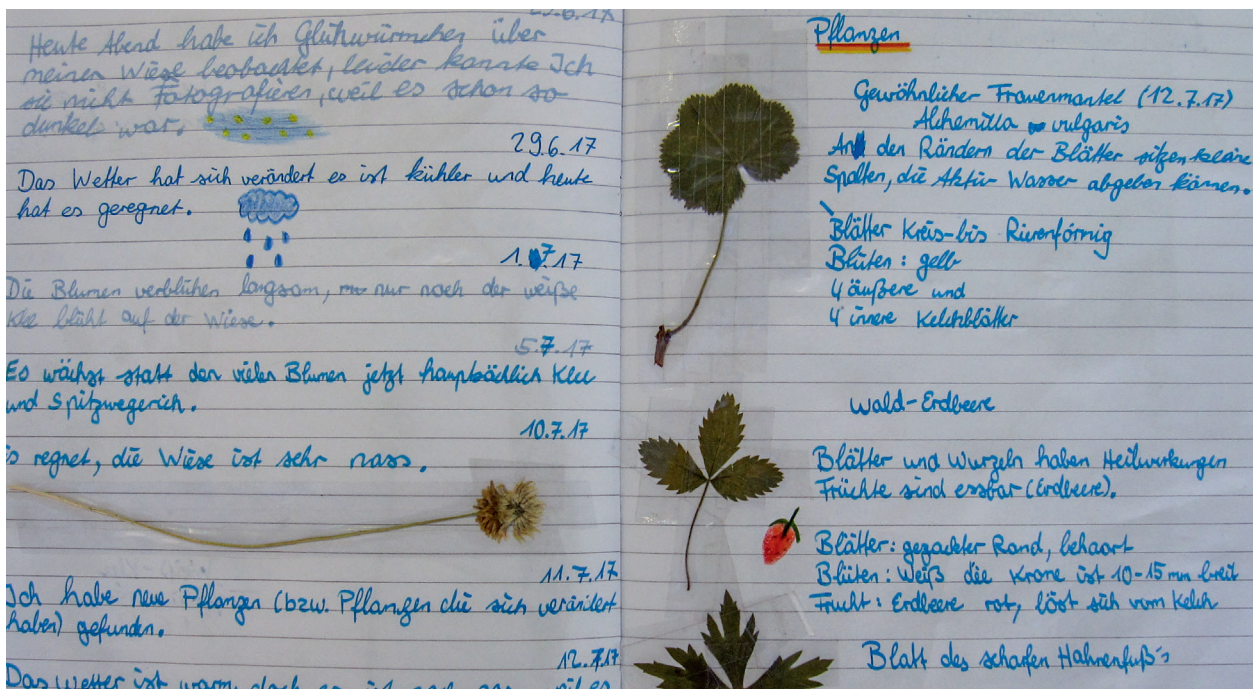 29.6.17
Heute Abend habe ich Glühwürmchen über
meiner Wiese beobachtet, leider konnte Ich
sie nicht Fotografieren, weil es schon so
dunkel war.
29.6.17
Das Wetter hat sich verändert es ist kühler und heute
hat es geregnet.
1.7.17
Die Blumen verblühen langsam, nur noch der weiße
Klee blüht auf der Wiese.
5.7.17
Es wächst statt den vielen Blumen jetzt hauptsächlich Klee
und Spitzwegerich.
10.7.17
Es regnet, die Wiese ist sehr nass.
11.7.17
Ich habe neue Pflanzen (bzw. Pflanzen die sich verändert
haben) gefunden.
12.7.17
Das Wetter ist warm, doch es ist
Pflanzen
Gewöhnlicher Frauenmantel (12.7.17)
Alchemilla vulgaris
An den Rändern der Blätter sitzen kleine
Spalten, die Aktiv Wasser abgeben können.
Blätter Kreis-bis Nierenförmig
Blüten: gelb
4 äußere und
4 innere Kelchblätter
Wald-Erdbeere
Blätter und Wurzeln haben Heilwirkungen
Früchte sind essbar (Erdbeere).
Blätter: gezackter Rand, behaart
Blüten: Weiß die Krone ist 10-15 mm breit
Frucht: Erdbeere rot, löst sich vom Kelch
Blatt des scharfen Hahnenfuß's